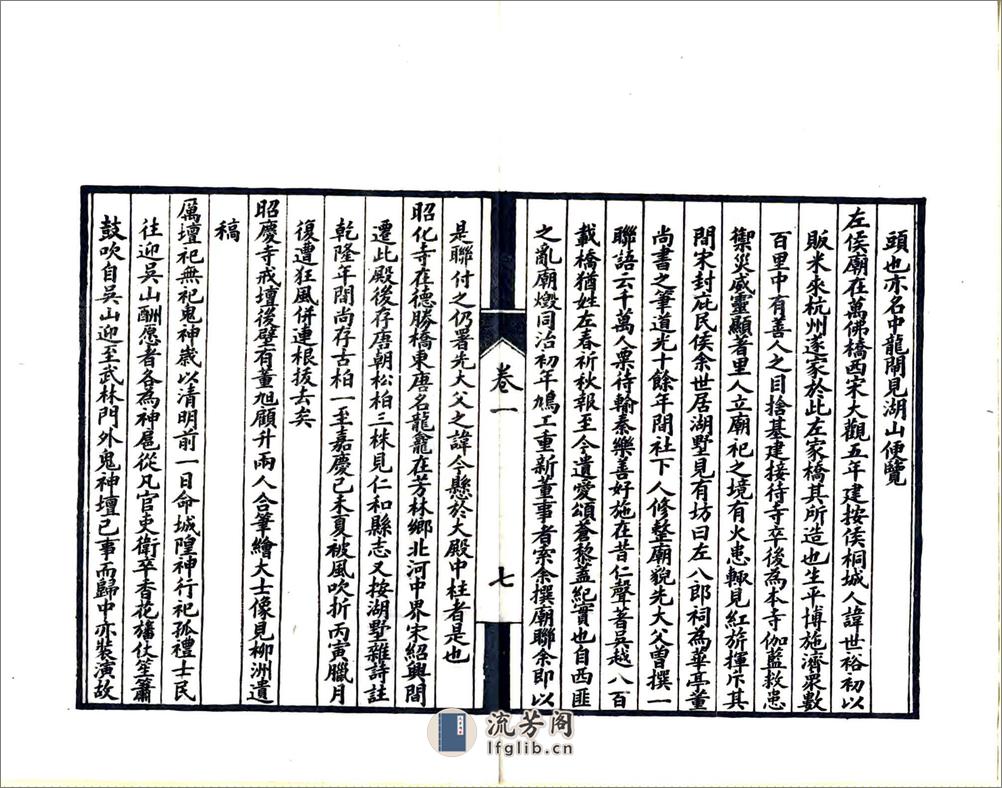 頭也亦名中龍閘見湖山便覽
左侯廟在萬佛橋西宋大觀五年建按侯桐城人諱世裕初以
販米來杭州遂家於此左家橋其所造也生平博施濟眾數
百里中有善人之目捨基建接待寺卒後為本寺伽藍救患
禦災威靈顯著里人立廟祀之境有火患輒見紅旂揮斥其
間宋封庇民侯余世居湖墅見有坊曰左八郎祠為華亭董
尚書之筆道光十餘年間社下人修整廟貌先大父曾撰一
聯語云千萬人票待輸泰樂善好施在昔仁聲著吳越八百
載橋猶姓左春祈秋報至今遺愛頌蒼黎蓋紀實也自西匪
之亂廟燬同治初年鳩工重新董事者索余撰廟聯余即以
卷一
七
是聯付之仍署先大父之諱今懸於大殿中柱者是也
昭化寺在德勝橋東唐名龍龕在芳林鄉北河中界宋紹興間
遷此殿後存唐朝松柏三株見仁和縣志又按湖墅雜詩註
乾隆年間尚存古柏一至嘉慶己未夏被風吹折丙寅臘月
復遭狂風併連根拔去矣
昭慶寺戒壇後壁有董旭顧升兩人合筆繪大士像見柳洲遺
稿
厲壇祀無祀鬼神歲以清明前一日命城隍神行祀孤禮士民
往迎吳山酬愿者各為神扈從凡官吏衛卒香花旛仗笙簫
鼓吹自吳山迎至武林門外鬼神壇已事而歸中亦裝演故
流芳阁
lfglib.cn